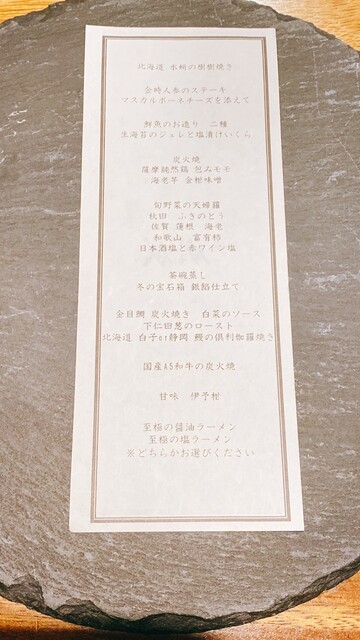 北海道 水蛸の樹樹焼き
金時人参のステーキ
マスカルポーネチーズを添えて
鮮魚のお造り 二種
生海苔のジュレと塩漬けいくら
炭火焼
薩摩純然鶏 包みモモ
海老芋 金柑味噌
旬野菜の天婦羅
秋田 ふきのとう
佐賀 蓮根 海老
和歌山 富有柿
日本酒塩と赤ワイン塩
茶碗蒸し
冬の宝石箱 銀餡仕立て
金目鯛 炭火焼き 白菜のソース
下仁田葱のロースト
北海道 白子or静岡 鰻の倶利伽羅焼き
国産A5和牛の炭火焼
甘味 伊予柑
至極の醤油ラーメン
至極の塩ラーメン
※どちらかお選びください